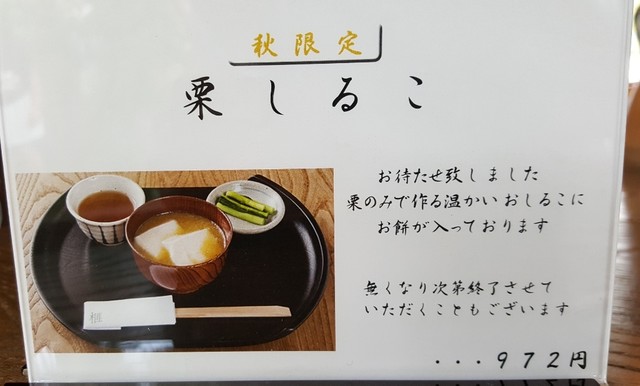 秋限定
栗しるこ
お待たせ致しました
栗のみで作る温かいおしるこに
お餅が入っております
無くなり次第終了させて
いただくこともございます
・・・972円